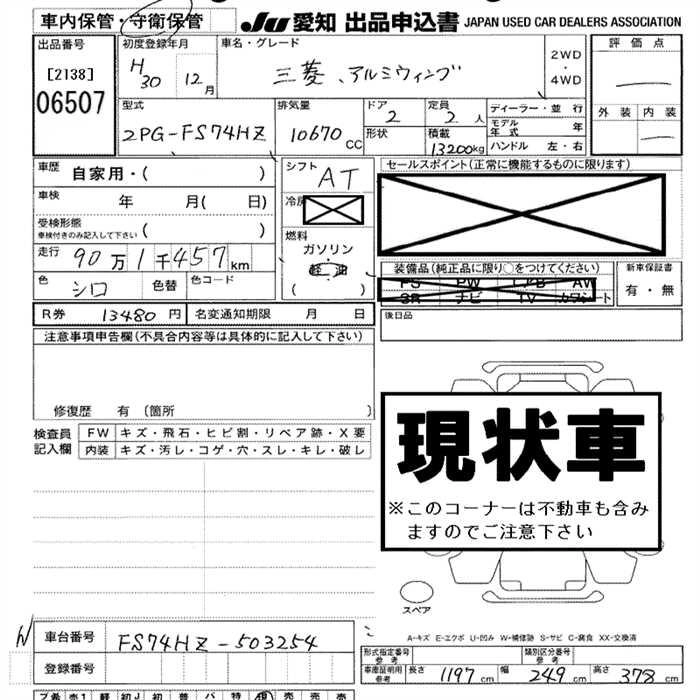 車内保管・守衛保管 JU 愛知 出品申込書 JAPAN USED CAR DEALERS ASSOCIATION
出品番号 [2138] 06507
初度登録年月 H30 12月
車名・グレード 三菱、アルミウィング 2WD・4WD
評価点
外装 内装
型式 2PG-FS74HZ
排気量 10670cc
ドア 2
形状
定員 2人
積載 13200kg
ディーラー・並行
モデル年式 年
ハンドル 左・右
車歴 自家用・( )
車検 年 月( 日)
受検形態 ( )
車検付きのみ記入して下さい
走行 90万1千457km
色 シロ 色替 色コード
シフト AT
冷房
燃料 ガソリン・軽油 ( )
セールスポイント(正常に機能するものに限ります)
装備品(純正品に限り○をつけてください)
PS PW エアB AW
SR ナビ TV カワシート
新車保証書 有・無
後日品
R券 13480円 名変通知期限 月 日
注意事項申告欄(不具合内容等は具体的に記入して下さい)
修復歴 有 〔箇所 〕
検査員記入欄
FW キズ・飛石・ヒビ割・リペア跡・X要
内装 キズ・汚レ・コゲ・穴・スレ・キレ・破レ
現状車
※このコーナーは不動車も含み
ますのでご注意下さい
スペア
A-キズ E-エクボ U-凹み W-補修跡 S-サビ C-腐食 XX-交換済
車台番号 FS74HZ-503254
登録番号
形式指定番号 参考 類別区分番号 参考
車庫証明用 参考 長さ 1197cm 幅 249cm 高さ 378cm